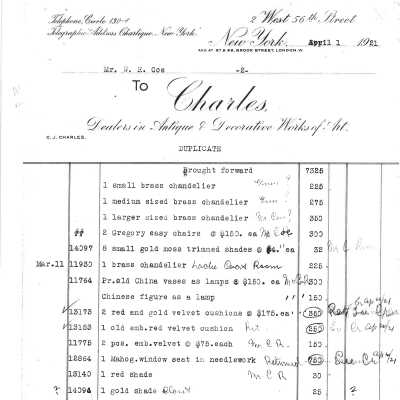 Telephone, Circle 130-1
Telegraphic Address Charlique, New York.
2 West 56th Street
New York. April 1 1921
AND AT 27 & 29, BROOK STREET, LONDON. W.
Mr. W. R. Coe -2-
To Charles,
Dealers in Antique & Decorative Works of Art.
C. J. CHARLES.
DUPLICATE
Brought forward 7325
1 small brass chandelier ? 225
1 medium sized brass chandelier ? 275
1 larger sized brass chandelier ? 350
2 Gregory easy chairs @ $150. ea 300
14097 8 small gold moss trimmed shades @ $4." ea 32
Mar.11 11930 1 brass chandelier Room 225
11764 Pr.old China vases as lamps @ $150. ea 300
Chinese figure as a lamp " " " 150
13173 2 red and gold velvet cushions @ $175.ea 350
13153 1 old emb.red velvet cushion 250
11775 2 pos. emb.velvet @ $75.each M C R. 150
12864 1 Mahog.window seat in needlework Returned 750
13140 1 red shade M C R 30
? 14094 1 gold shade 25 ?